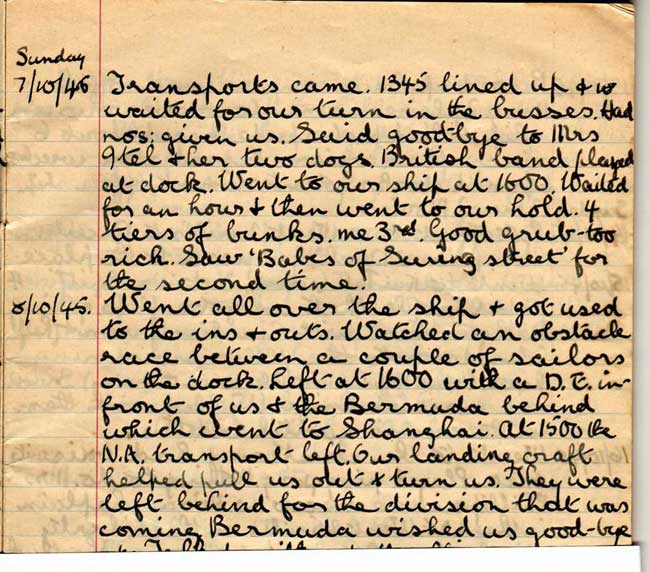 Sunday
7/10/45 Transports came. 1345 lined up & w
waited for our turn in the busses. Had
nos: given us. Said good-bye to Mrs
Itel & her two dogs. British band played
at dock. Went to our ship at 1600. Waited
for an hour & then went to our hold. 4
tiers of bunks. me 3rd. Good grub-too
rich. Saw 'Babes of Swing street' for
the second time.
8/10/45. Went all over the ship & got used
to the ins & outs. Watched an obstacle
race between a couple of sailors
on the dock. Left at 1600 with a D.E. in-
front of us & the Bermuda behind
which went to Shanghai. At 1500 the
N.A. transport left. Our landing craft
helped pull us out & turn us. They were
left behind for the division that was
coming. Bermuda wished us good-bye